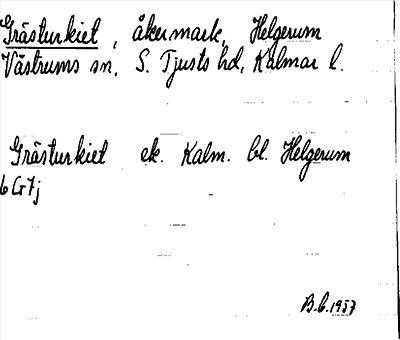 Grästurkiet, åkermark, Helgerum
Västrums sn, S. Tjusts hd, Kalmar l.
Grästurkiet ek. Kalm. bl. Helgerum
6G7j
B.G. 1957